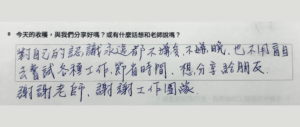 8 今天的收穫,與我們分享好嗎?或有什麼話想和老師說嗎?
對自己的認識永遠都不嫌多不嫌晚,也不用盲目
去嘗試各種工作,節省時間,想分享給朋友,
謝謝老師,謝謝工作團隊